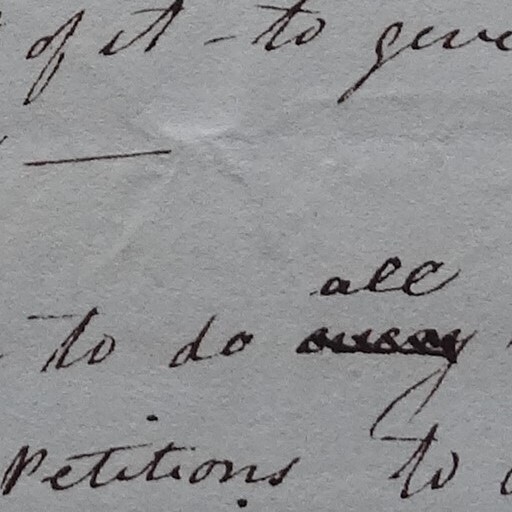 of it - to give
all
to do
Petitions to